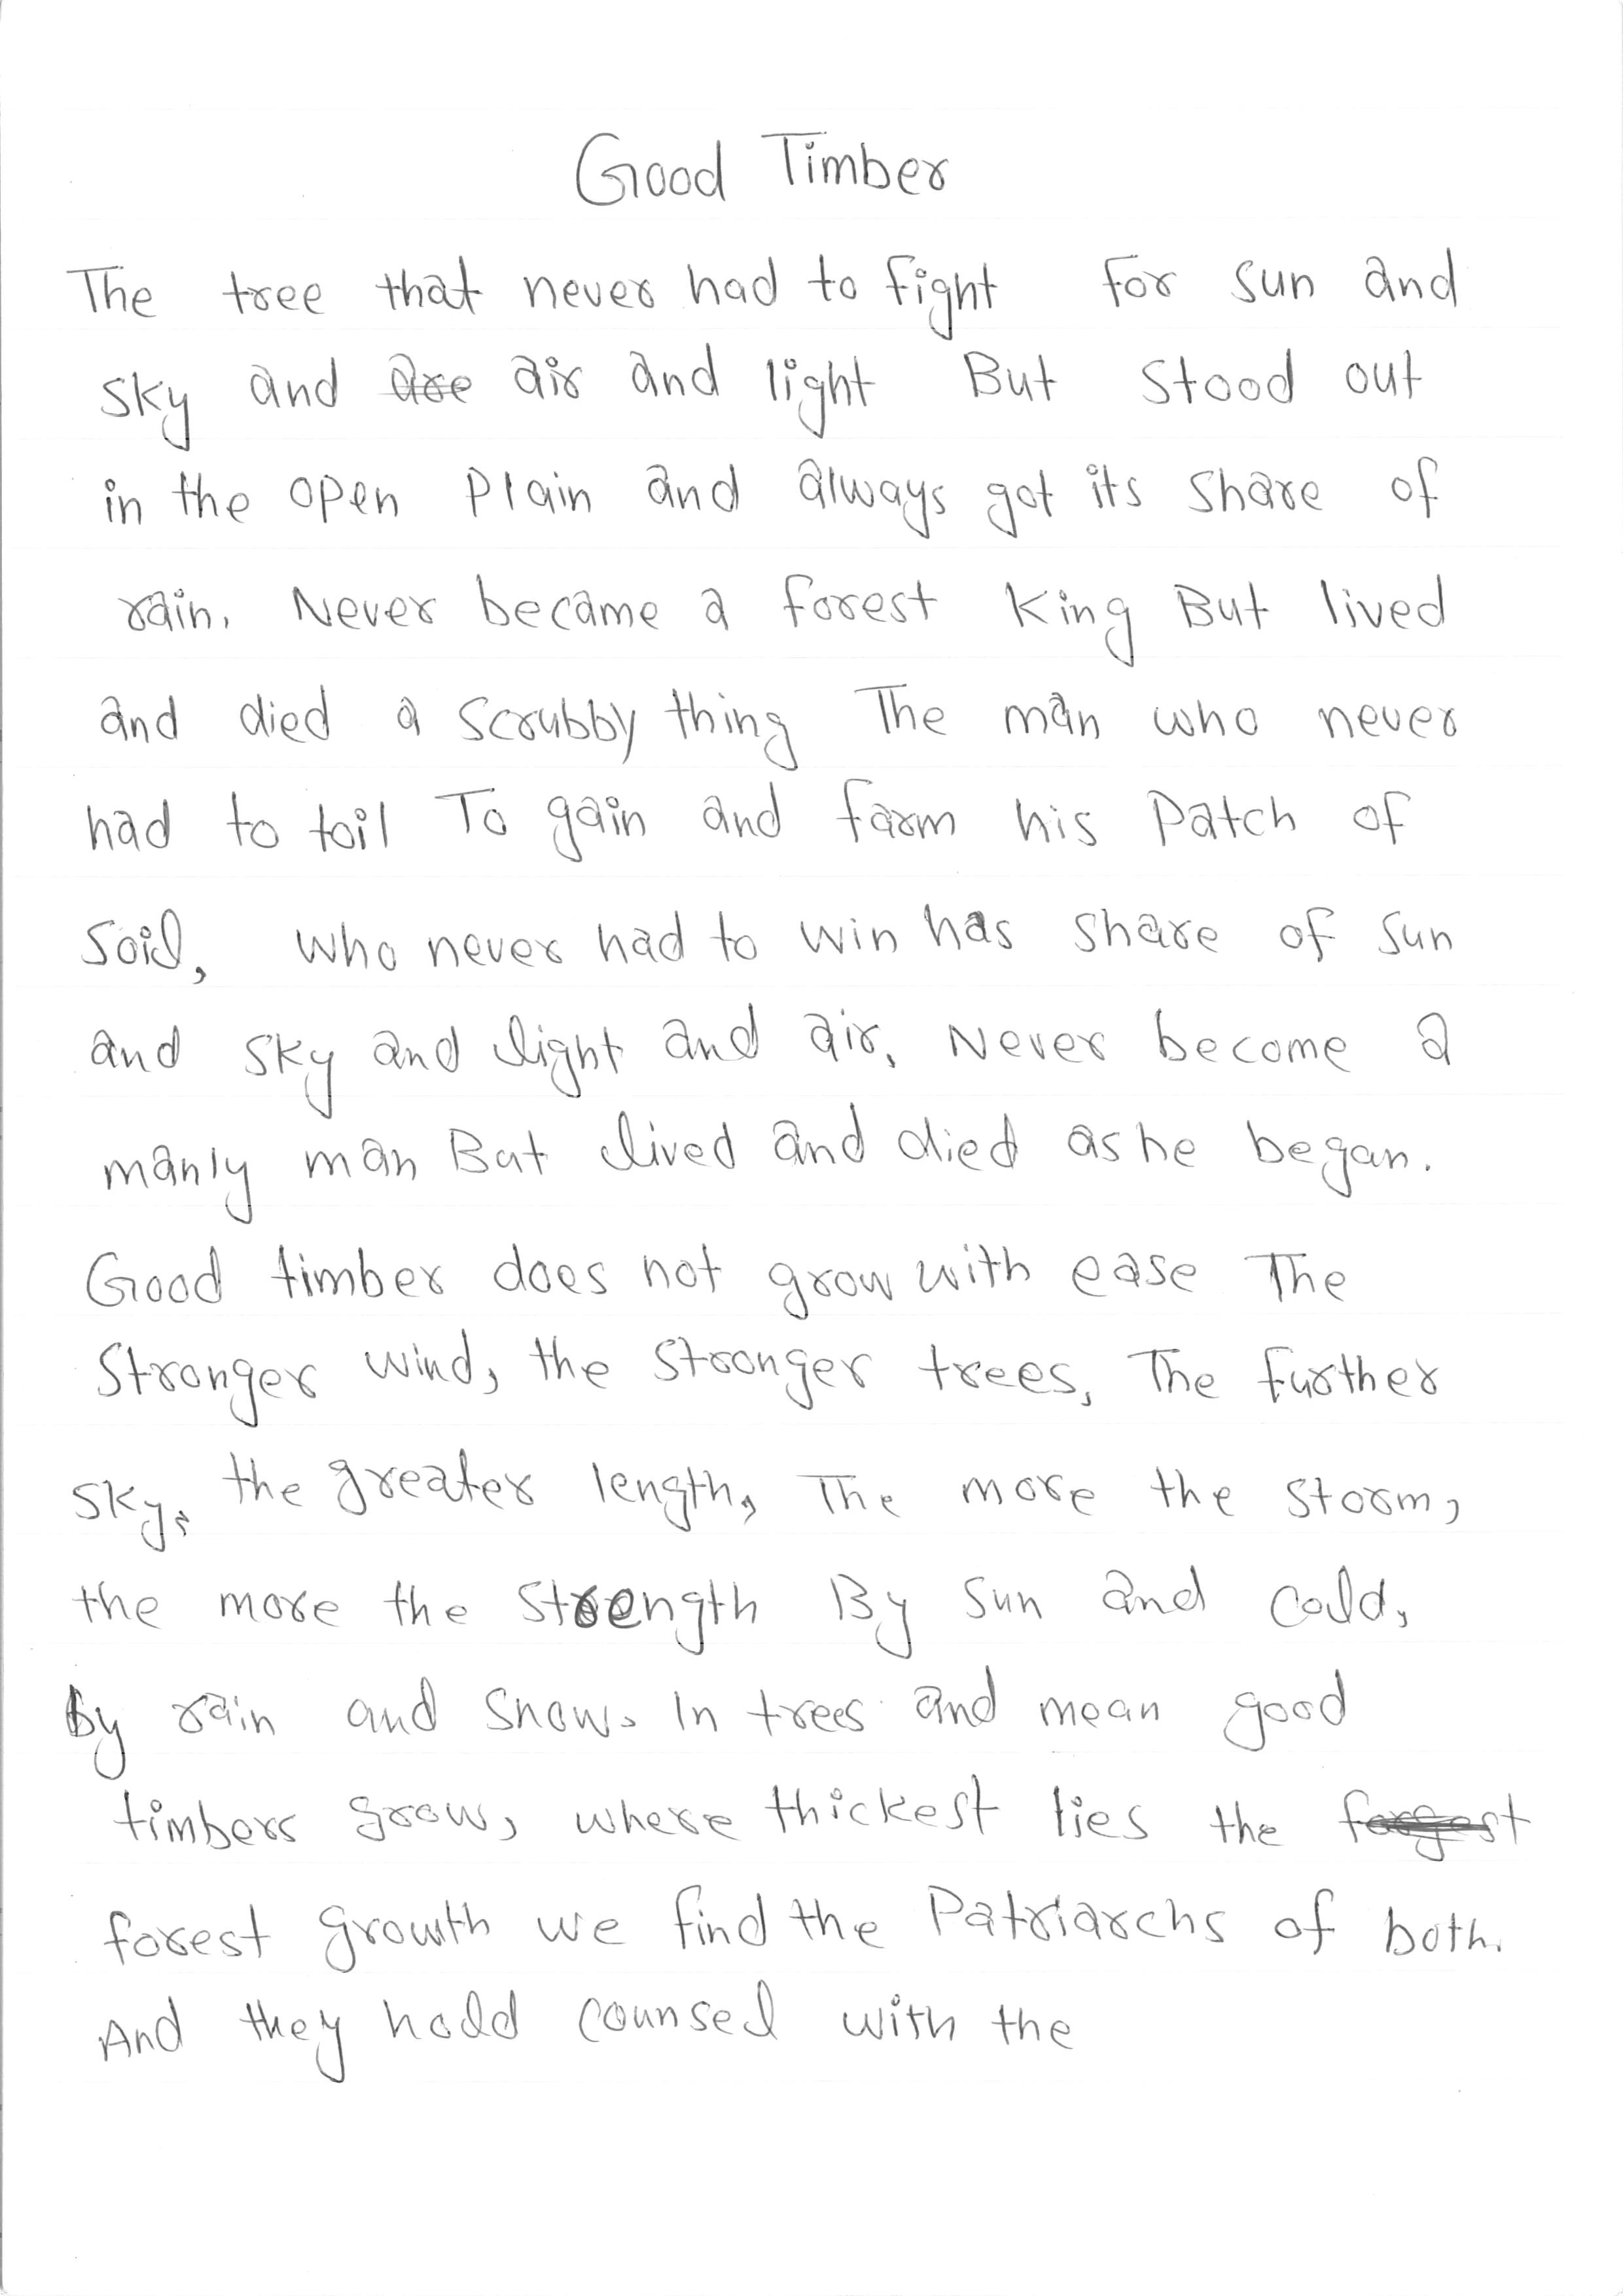 Good Timber
The tree that never had to fight for sun and
sky and are air and light But stood out
in the open Plain and always got its share of
rain, Never became a forest King But lived
and died a scrubby thing The man who never
had to toil To gain and farm his Patch of
Soil, Who never had to win has share of sun
and sky and light and air, Never become a
manly man But lived and died as he began.
Good timber does not grow with ease The
Stronger wind, the stronger trees, The further
sky, the greater length, The more the storm,
the more the strength By sun and cold,
by rain and snow. In trees and mean good
timbers grow, where thickest lies the forgest
forest growth we find the Patriarchs of both.
And they hold counsel with the